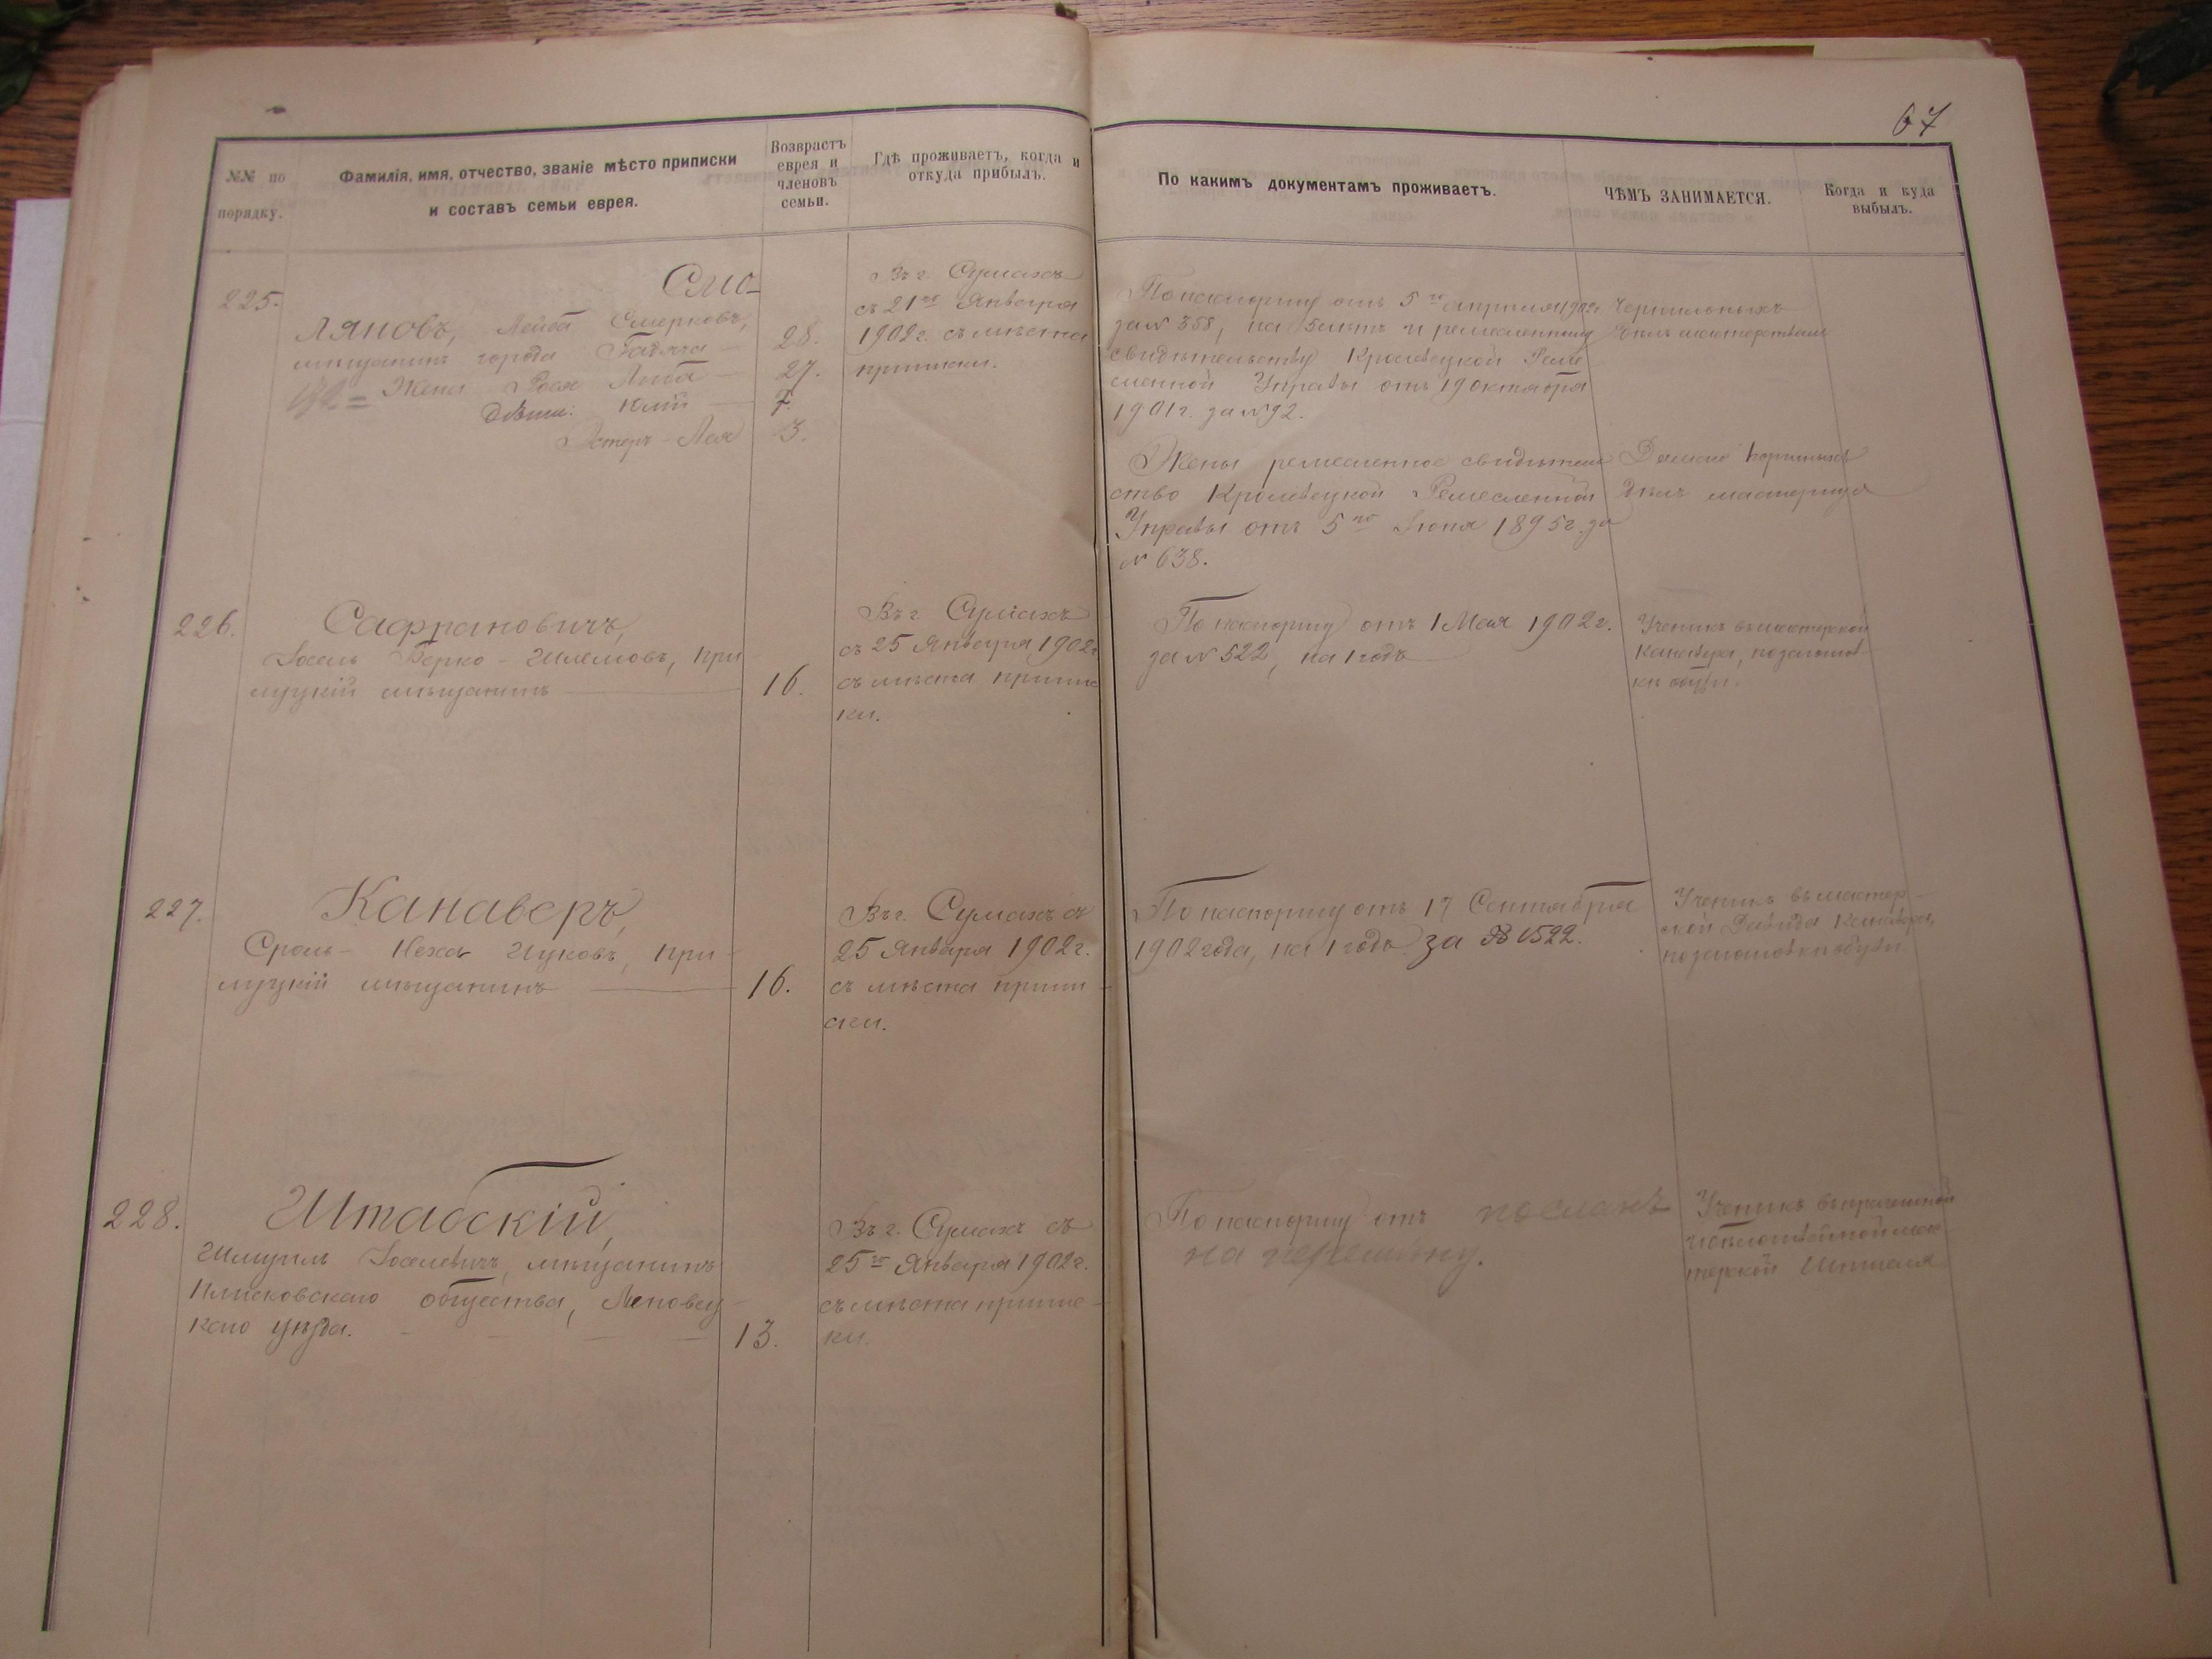 67
№№ по
порядку.
Фамилія, имя, отчество, званіе мѣсто приписки
и составъ семьи еврея.
Возврастъ
еврея и
членовъ
семьи.
Гдѣ проживаетъ, когда и
откуда прибылъ.
По какимъ документамъ проживаетъ.
ЧѢМЪ ЗАНИМАЕТСЯ.
Когда и куда
выбылъ.
225.
Смо-
ляновъ, Лейба Смерковъ,
мѣщанинъ города Гадяча
Жена Рося Либа
Дѣти:
Эстеръ-Лея
28.
27.
7.
3.
Въ г. Сумахъ
съ 21го Января
1902г. съ мѣста
приписки.
По паспорту отъ 5го Апрѣля 1902г.
за № 358, на 5 лѣтъ и ремесленному
свидѣтельству Кролевецкой Реме
сленной Управы отъ 19 октября
1901г. за № 92.
Чернильныхъ
дѣлъ мастерствомъ
Жены ремесленное свидѣтель
ство Кролевецкой Ремесленной
Управы отъ 5го Іюня 1895г. за
№ 638.
Дамско портныхъ
дѣлъ мастерица
226.
Сафрановичъ,
Іосель Берко-Шлемовъ, при
луцкій мѣщанинъ
16.
Въ г. Сумахъ
съ 25 Января 1902г
съ мѣста припис
ки.
По паспорту отъ 1 Мая 1902г.
за № 522, на 1 годъ
Ученикъ въ мастерской
Канавера, по заготов
ки обуви.
227.
Канаверъ,
Сроль-Неха Ицковъ, при-
луцкій мѣщанинъ
16.
Въ г. Сумахъ съ
25 Января 1902г.
съ мѣста припи-
ски.
По паспорту отъ 17 Сентября
1902 года, на 1 годъ за № 1522.
Ученикъ въ мастер-
ской Давида Канавера,
по заготовки обуви
228.
Штабскій,
Шмуилъ Іоселевичъ, мѣщанинъ
Плисковскаго общества, Липовец-
каго уѣзда.
13.
Въ г. Сумахъ съ
25го Января 1902г.
съ мѣста припис-
ки.
По паспорту отъ посланъ
на перемѣну.
Ученикъ въ
мас
терской